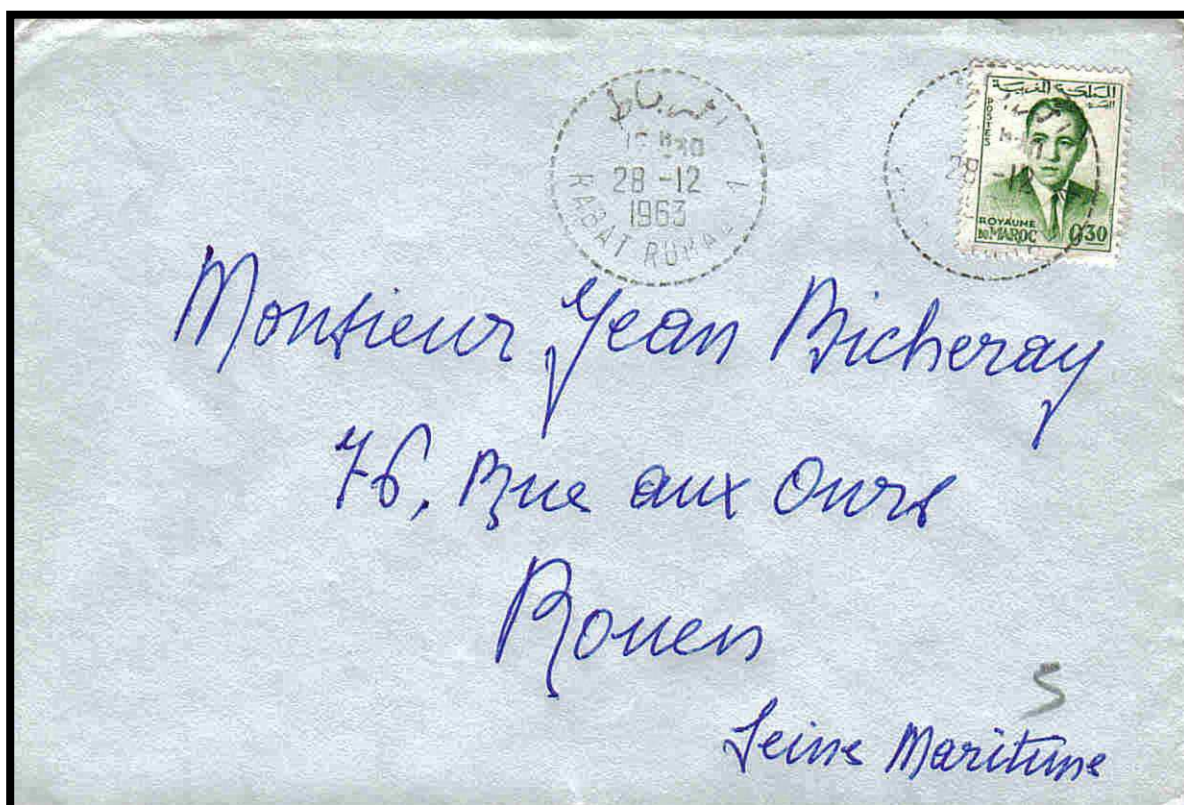 الرباط
28-12
1963
RABAT RURAL 1
المملكة المغربية
POSTES
28-12
ROYAUME
DU MAROC 0,30
Monsieur Jean Bicheray
76, Rue aux Ours
Rouen
5
Seine Maritime